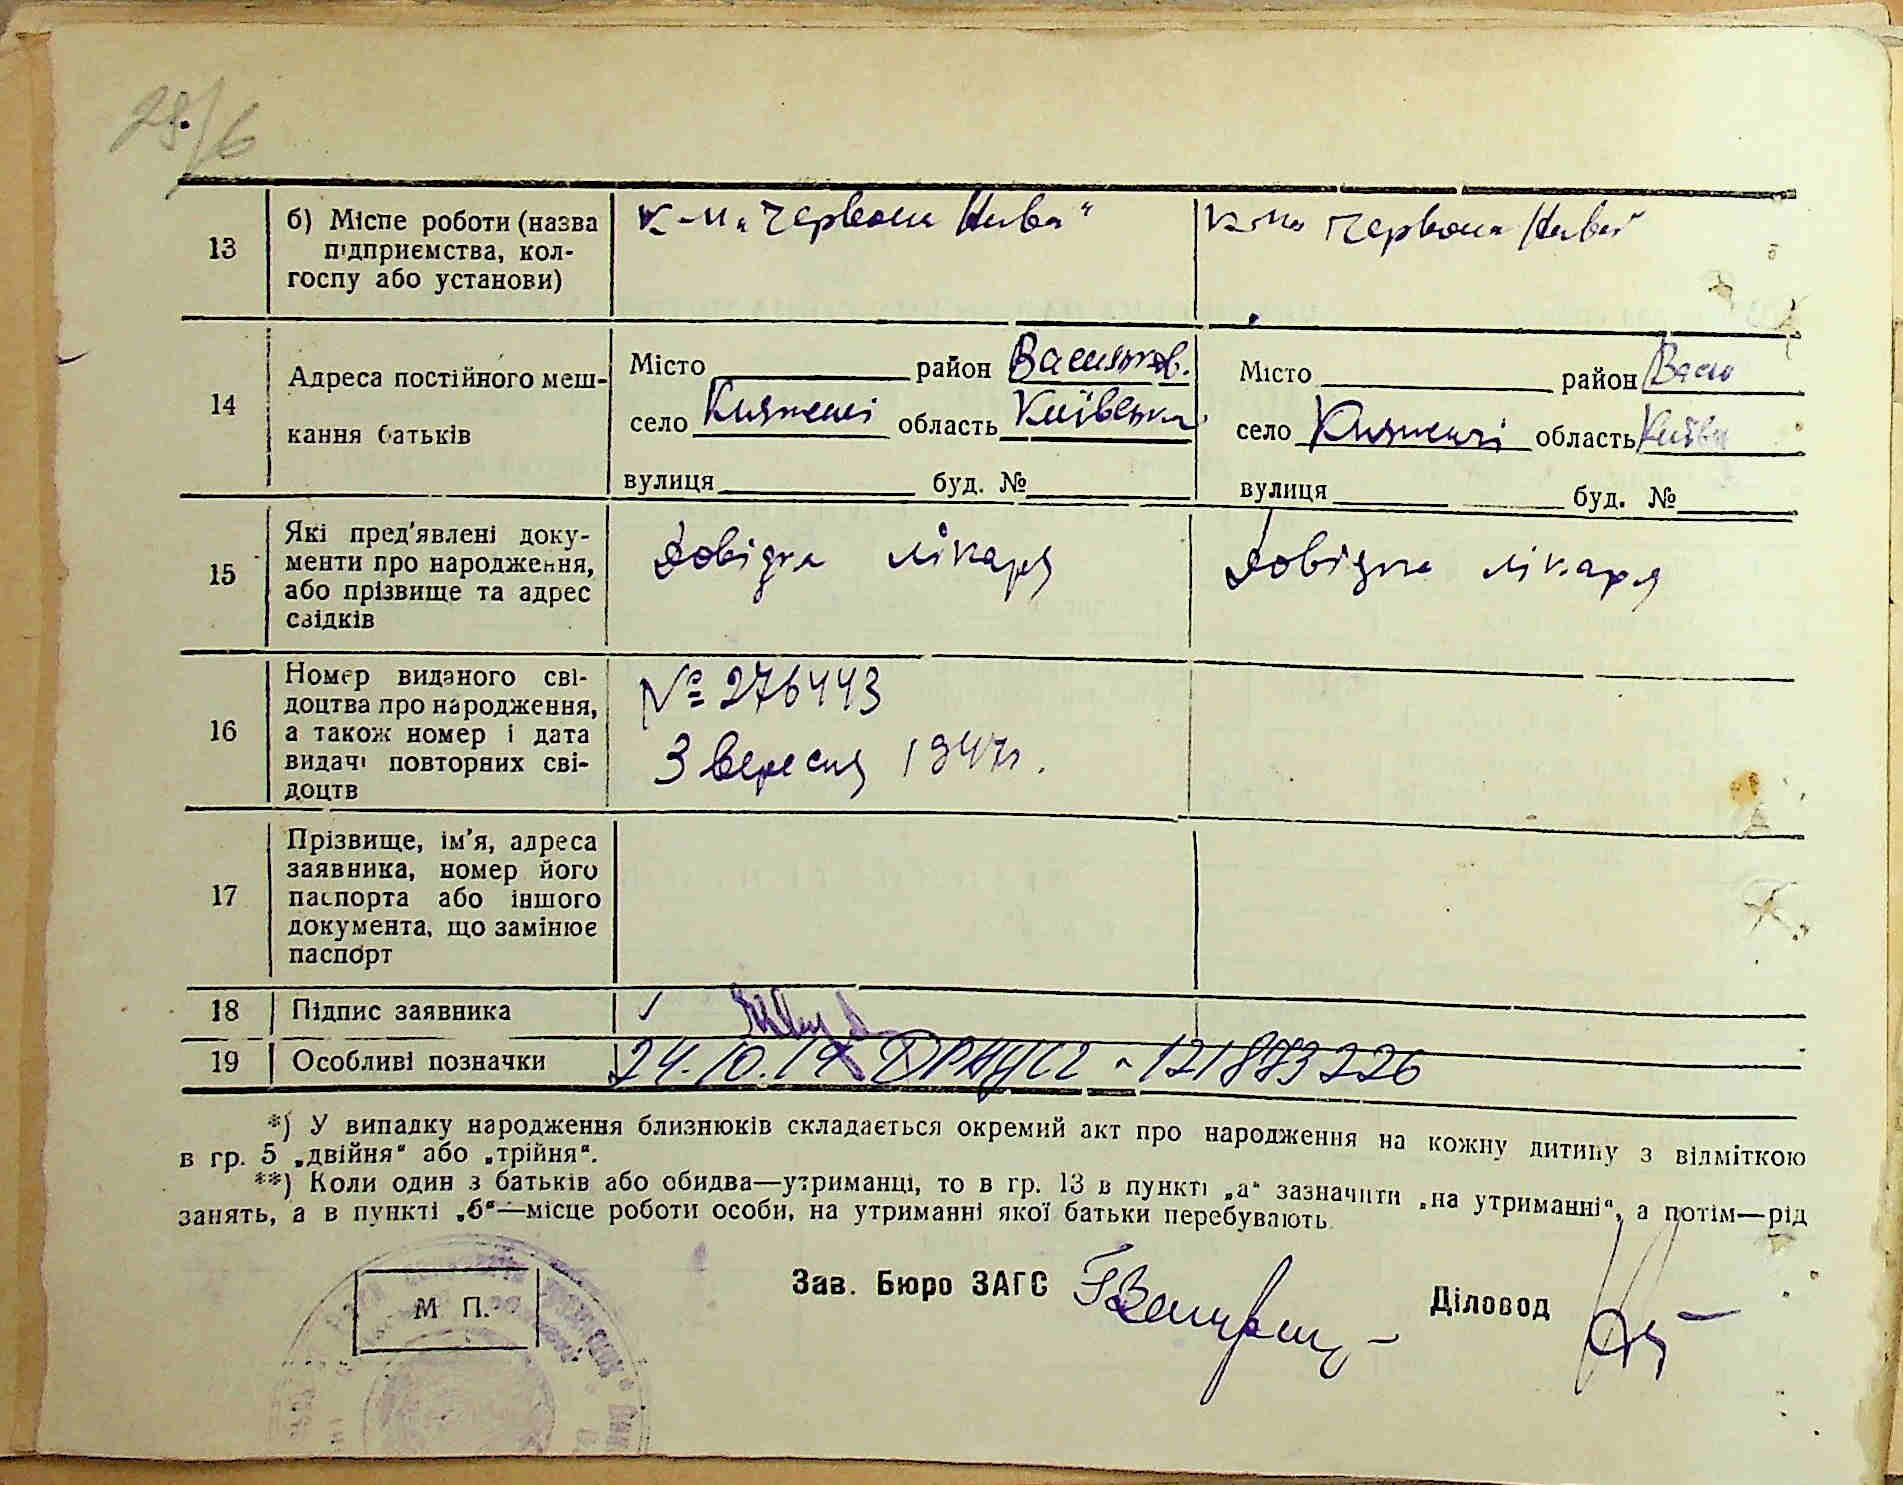 29/6
13
б) Місце роботи (назва
підприємства, кол-
госпу або установи)
к-п „Червона Нива"
к-п „Червона Нива"
14
Адреса постійного меш-
кання батьків
Місто район Васильков.
село Княжичі область Київська
вулиця буд. №
Місто район Васи
село Княжичі область Київ
вулиця буд. №
15
Які пред'явлені доку-
менти про народження,
або прізвище та адрес
свідків
Довідка лікаря
Довідка лікаря
16
Номер виданого сві-
доцтва про народження,
а також номер і дата
видачі повторних сві-
доцтв
№ 276443
3 вересня 1947 г.
17
Прізвище, ім'я, адреса
заявника, номер його
паспорта або іншого
документа, що замінює
паспорт
18 Підпис заявника
19 Особливі позначки
24.10.19 ДРАЦСГ 121883226
*) У випадку народження близнюків складається окремий акт про народження на кожну дитину з відміткою
в гр. 5 „двійня" або „трійня".
**) Коли один з батьків або обидва—утриманці, то в гр. 13 в пункті „а" зазначити „на утриманні", а потім—рід
занять, а в пункті „б"—місце роботи особи, на утриманні якої батьки перебувають.
М П.
Зав. Бюро ЗАГС
Діловод